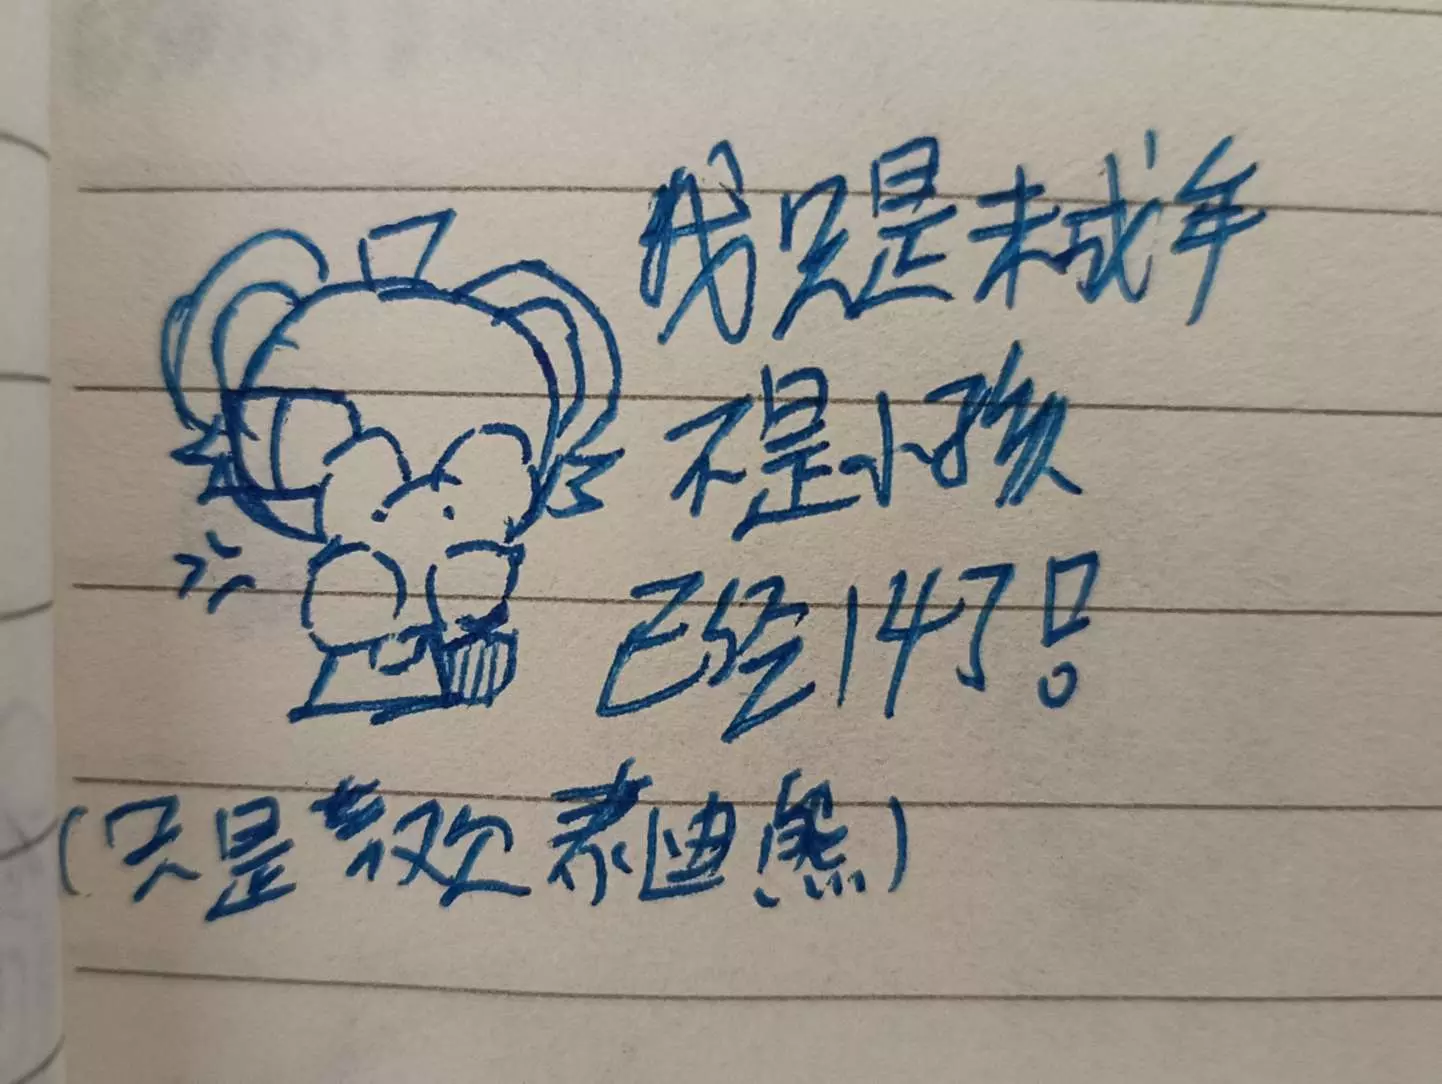 我只是未成年
不是小孩
已经14了!
(只是喜欢泰迪熊)